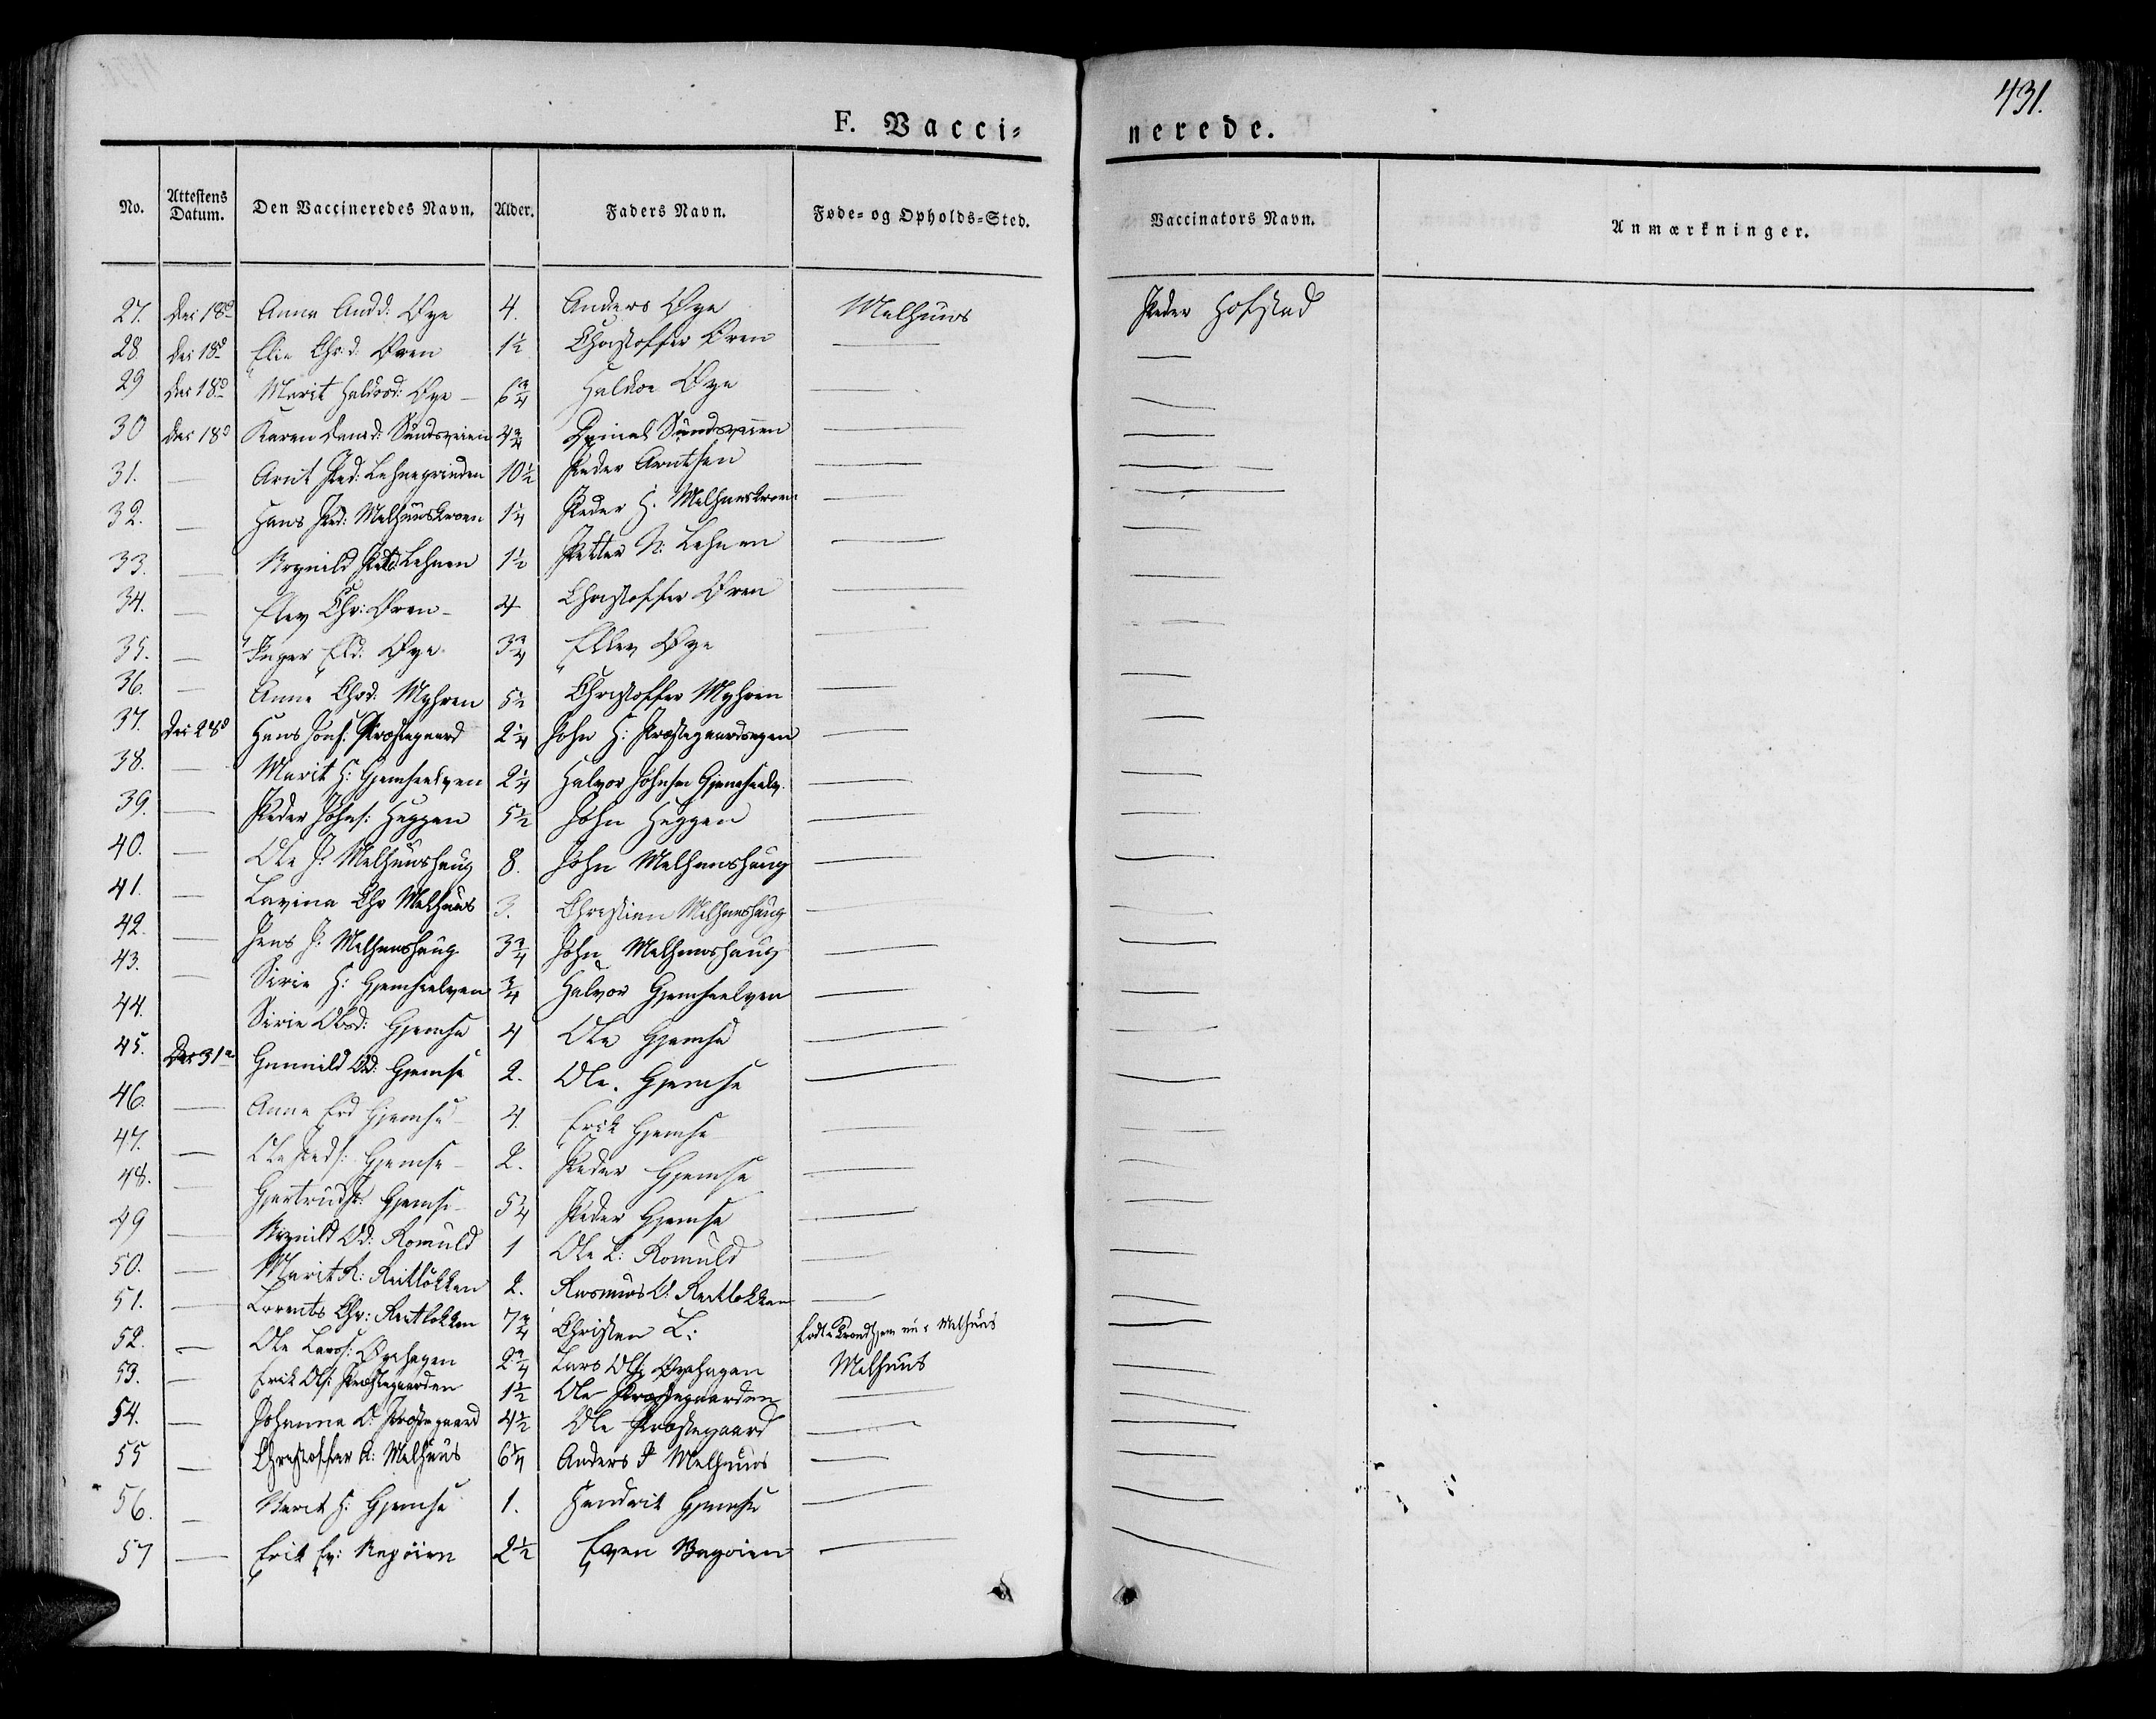 431.
F. Vacci-
nerede.
No. Attestens Datum. Den Vaccineredes Navn. Alder. Faders Navn. Føde- og Opholds-Sted. Vaccinators Navn. Anmærkninger.
27. Dec 18d Anne Andd: Øye 4. Anders Øye Melhuus Peder Hofstad
28. Dec 18d Elie Chrd: Øren 1½ Christoffer Øren — —
29 Dec 18d Marit Haldosd: Øye — 6¾ Haldoe Øye — —
30 Dec 18d Karen Dand: Sundsveien 4¾ Sundsveien — —
31. — Arnt Ped: Lehnegrinden 10½ Peder Arntsen — —
32. — Hans Ped: Melhuuskroen 1¼ Peder H. Melhuuskroen — —
33. — Petd Lehnen 1½ Petter N: Lehnen — —
34. — Elev Chr: Øren — 4 Christoffer Øren — —
35. — Inger Eld: Øye 3¾ Ellev Øye — —
36. — Anne Chrd: Myhren 5½ Christoffer Myhren — —
37. Dec 28d Hans Johs: Præstegaard 2¼ John H: — —
38. — Marit H: Gjemseelven 2¼ Halvor Johnsen Gjemseelv. — —
39. — Peder Johns: Heggen 5½ John Heggen — —
40. — Ole J: Melhuushaug 8. John Melhuushaug — —
41. — Lavina Chr Melhuus 3. Christien Melhuushaug — —
42. — Jens J: Melhuushaug 3¾ John Melhuushaug — —
43. — Sirie H: Gjemseelven ¾ Halvor Gjemseelven — —
44. Sirie Olsd: Gjemse 4 Ole Gjemse — —
45. Dec 31 Gunnild Od: Gjemse 2. Ole. Gjemse — —
46. — Anne Erd Gjemse 4. Erik Gjemse — —
47. — Ole Peds: Gjemse — 2. Peder Gjemse — —
48. — Gjertrud P: Gjemse — 5¼ Peder Gjemse — —
49 — Od: Romuld 1 Ole L: Romuld — —
50. — Marit R: Reitløkken 2. Rasmus O: Reitløkken — —
51. — Lorents Chr: Reitløkken 7¾ Christen L: født i Trondhjem nu i Melhuus —
52. — Ole Lars: Øyehagen 2¾ Lars Ols Øyehagen Melhuus —
53. — Erik Ols: Præstegaarden 1½ Ole Præstegaarden — —
54. — Johanna O: Præstegaard 4½ Ole Præstegaard — —
55 — Christoffer A: Melhuus 6¼ Anders P Melhuus — —
56. — Marit H: Gjemse 1. Hendrik Gjemse — —
57 — Erik Ev: 2½ Even — —